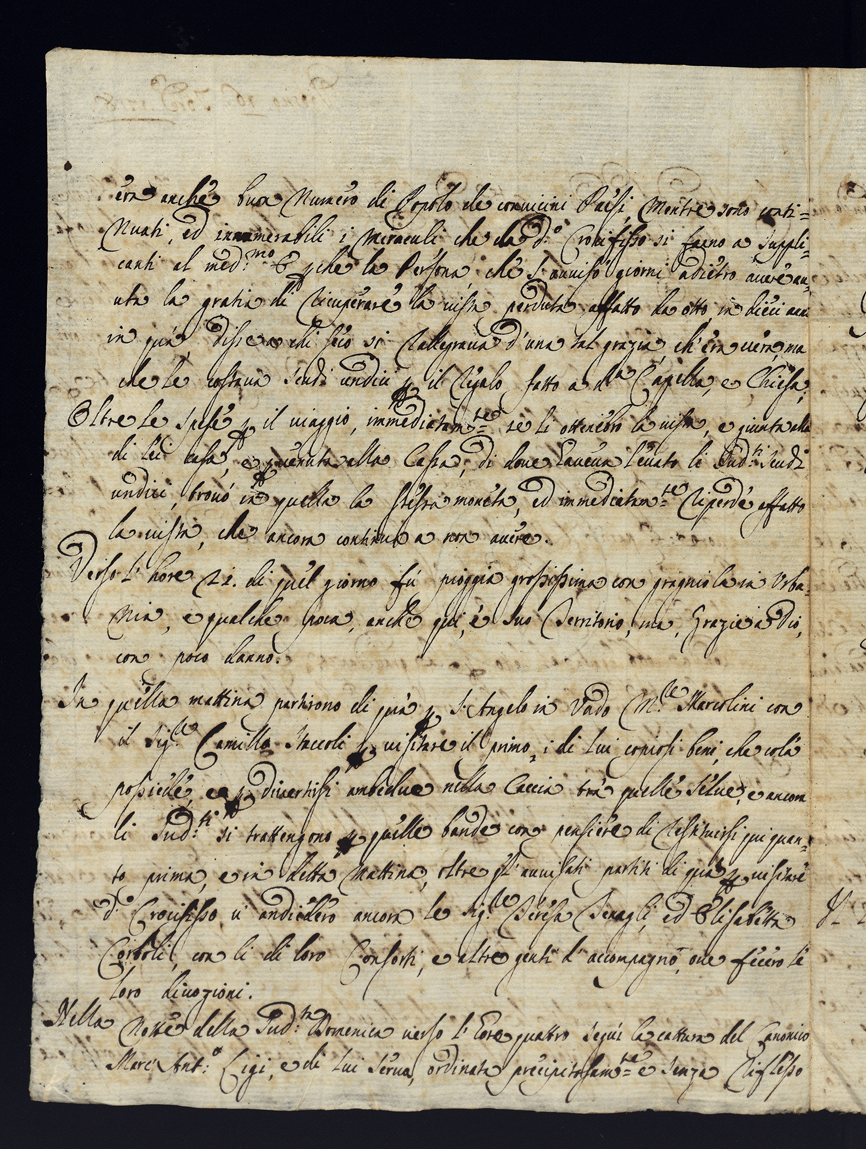 era anche buon Numero di Popolo de convicini Paesi, Mentre sono conti=
nuati, ed innumerabili i Miracoli che da d.º Crocifisso si fanno a suppli=
canti al med.mo E che la Persona che s'avvisò giorni adietro avere av=
uta la gratia di ricuperare la vista perduta affatto da otto in dieci anni
in quà, disse a chi seco si rallegrava d'una tal grazia, ch'era vera, ma
che le costava scudi undici p il regalo fatto a d.a Capella, e Chiesa,
Oltre le spese p il viaggio, immediatam.te se li ottenebrò la vista, e giunta alla
di lei casa, e venuta alla Cassa, di dove haveva levato li sud.ti scudi
undici, trovò in quella la stessa moneta, ed immediatam.te riperdè affatto
la vista, che ancora continua a non avere.
Verso l'hore 21. di quel giorno fù pioggia grossissima con gragniola in Urba=
nia, e qualche poca, anche quì, e suo Territorio, ma, Grazie a Dio,
con poco danno.
In quella mattina partirono di quà p S. Angelo in Vado M.r Marcolini con
il Sig.re Camillo Staccoli p visitare il primo i di Lui comosi beni, che colà
possiede, e p divertirsi ambedue nella Caccia trà quelle Selve, e ancora
li Sud.ti si trattengono p quelle bande con pensiere di restituirsi qui quan=
to prima, e in detta Mattina, oltre gl'avvisati partiti di quà p visitare
d.º Crocifisso, vi andiedero ancora le Sig.re Teresa Benagli, ed Elisabetta
Corboli, con li di loro Consorti, e altre genti d'accompagno, ove fecero le
loro divozioni.
Nella Notte della Sud.ta Domenica verso l'hore quattro seguì la cattura del Canonico
Marc' Ant.º Gigi, e di Lui serva, ordinata precipitosam.te e senza riflesso